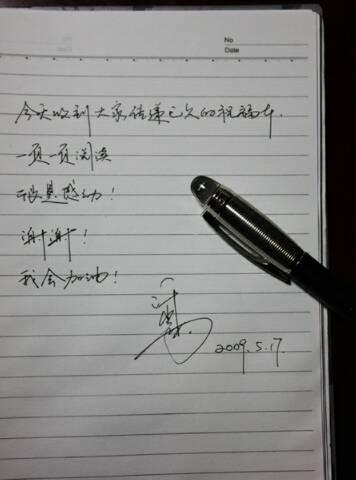 No
Date
今天收到大家传递已久的祝福本.
一页一页阅读
很是感动!
谢谢!
我会加油!
2009.5.17.